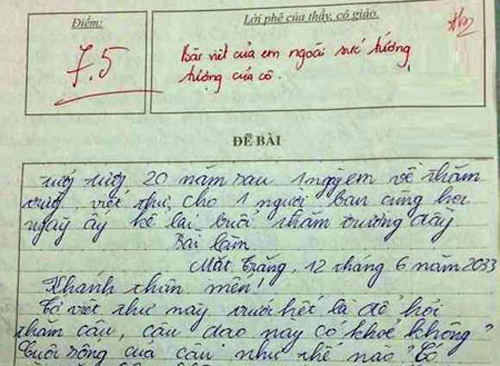 Điểm:
Lời phê của thầy, cô giáo.
7.5
Bài viết của em ngoài sức tưởng
tượng của cô.
ĐỀ BÀI
tưởng tượng 20 năm sau 1 ngày em về thăm
trường viết thư cho 1 người bạn cùng học
ngày ấy kể lại buổi thăm trường đầy
Bài làm
Mặt Trăng, 12 tháng 6 năm 2033
Khanh thân mến!
Tớ viết thư này trước hết là để hỏi
thăm cậu, cậu dạo này có khoẻ không
Cuộc sống của cậu như thế nào Tớ